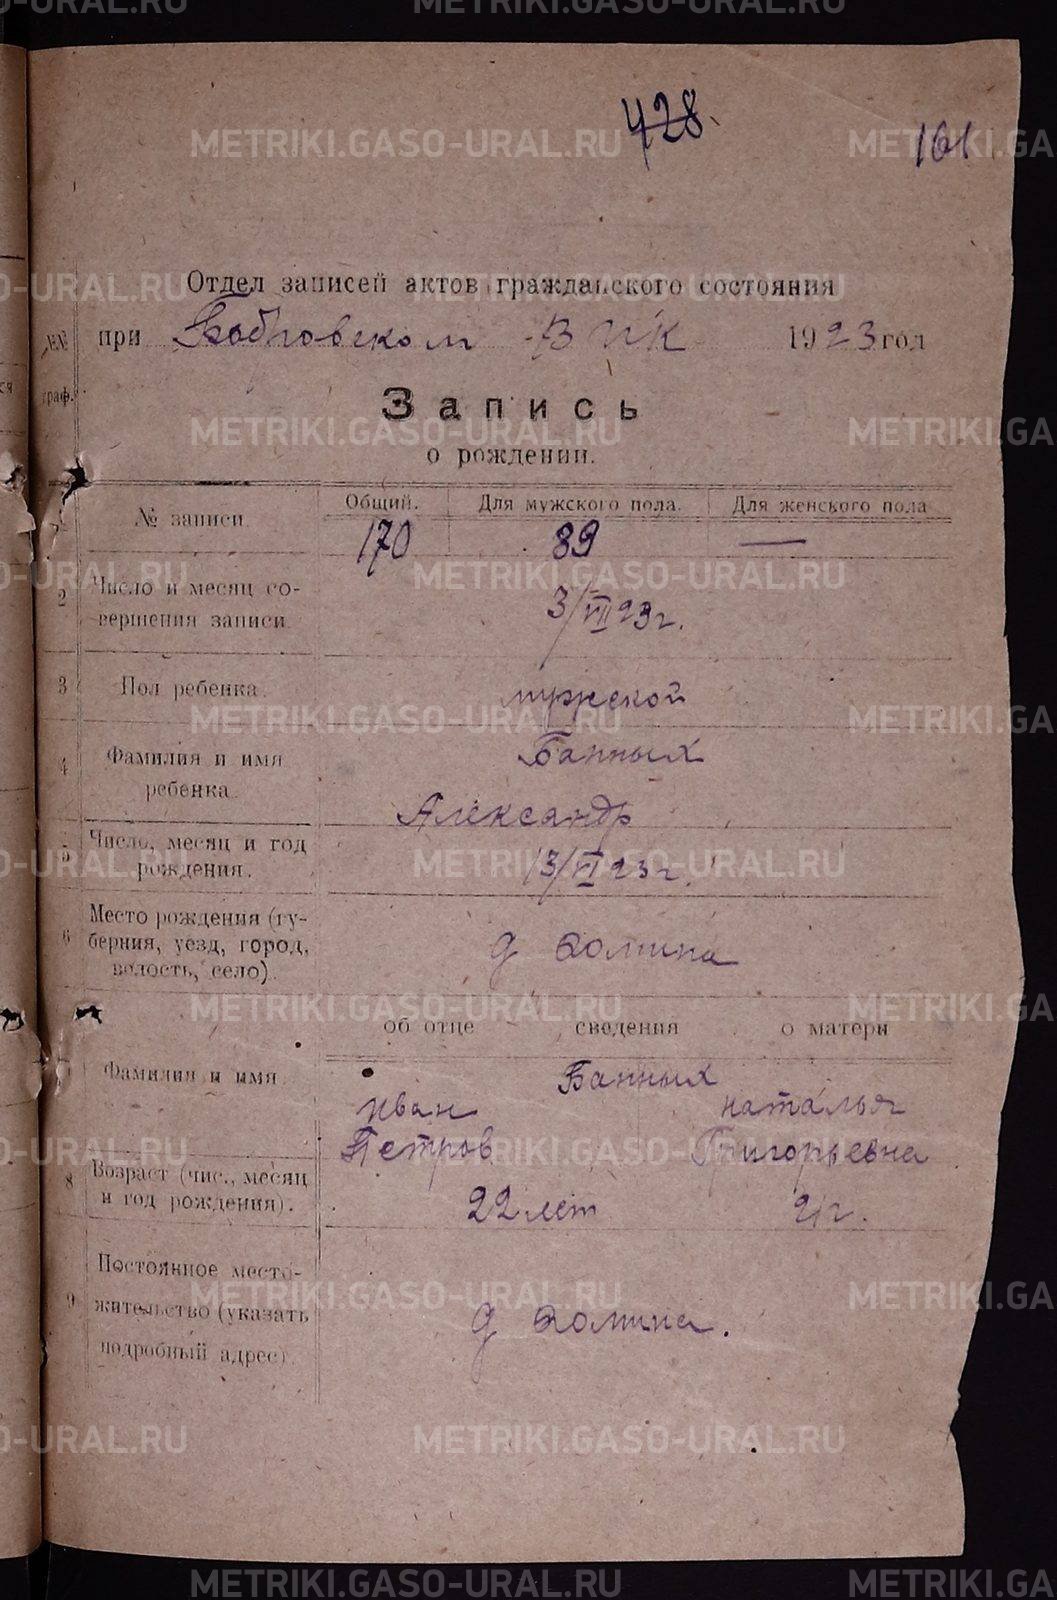 428.
161
Отдел записей актов гражданского состояния
при Бобровском ВИК 1923 год
№№
граф.
Запись
о рождении.
№ записи.
Общий. Для мужского пола. Для женского пола
170 89 —
2 Число и месяц со-
вершения записи
3/VII 23 г.
3 Пол ребенка. мужской
4 Фамилия и имя
ребенка.
Банных
Александр
5 Число, месяц и год
рождения.
13/VI 23 г.
6 Место рождения (гу-
берния, уезд, город,
волость, село).
д
об отце сведения о матери
Фамилия и имя
Банных
Иван Наталья
Петров Григорьевна
8 Возраст (чис., месяц
и год рождения).
22 лет 21 г.
9 Постоянное место-
жительство (указать
подробный адрес)
д
METRIKI.GASO-URAL.RU